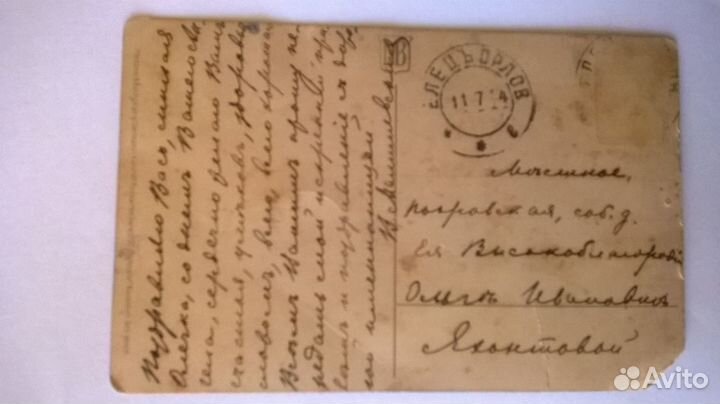 Поздравляю Васъ, милая
Олечка, со днемъ Вашего Ан-
гела, сердечно желаю Вамъ
счастья, успѣховъ, здоровья
словомъ, всего, всего хорошаго
Всѣмъ Вашимъ прошу пе-
редать мой искренній при-
вѣтъ и поздравленіе съ доро-
гой именинницей
ЕЛЕЦЪ ОРЛОВ
11 7 14
Мѣстное,
Покровская, соб. д.
Ея Высокоблагородію
Ольгѣ Ивановнѣ
Яхонтовой
Avito